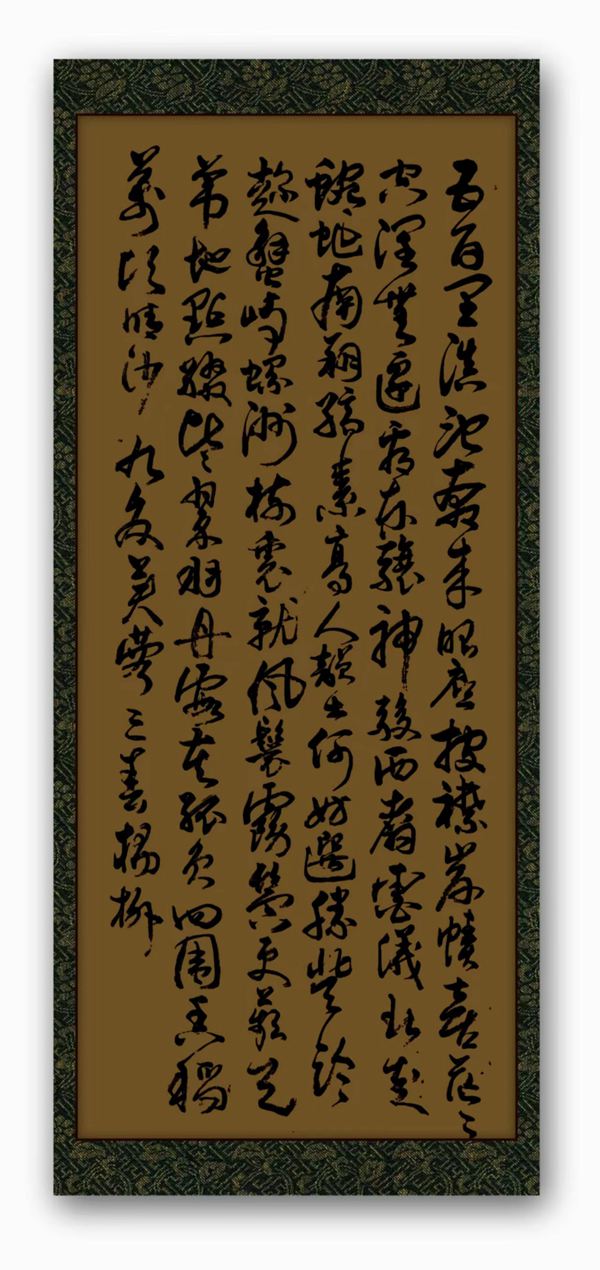 五百里滇池奔來眼底披襟岸幘喜茫〻
空闊無邊看東驤神駿西翥靈儀北走
蜿蜒南翔縞素高人韻士何妨選勝登臨
趁蟹嶼螺洲梳裹就風鬟霧鬢更蘋天
葦地點綴些翠羽丹霞莫孤負四圍香稻
萬頃晴沙九夏芙蓉三春楊柳